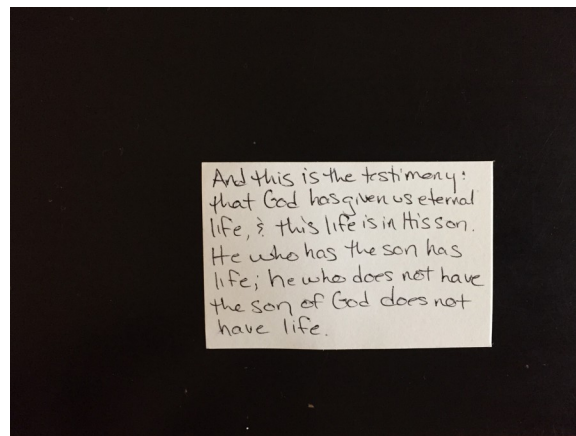 And this is the testimony:
that God has given us eternal
life, & this life is in His son.
He who has the son has
life; he who does not have
the son of God does not
have life.